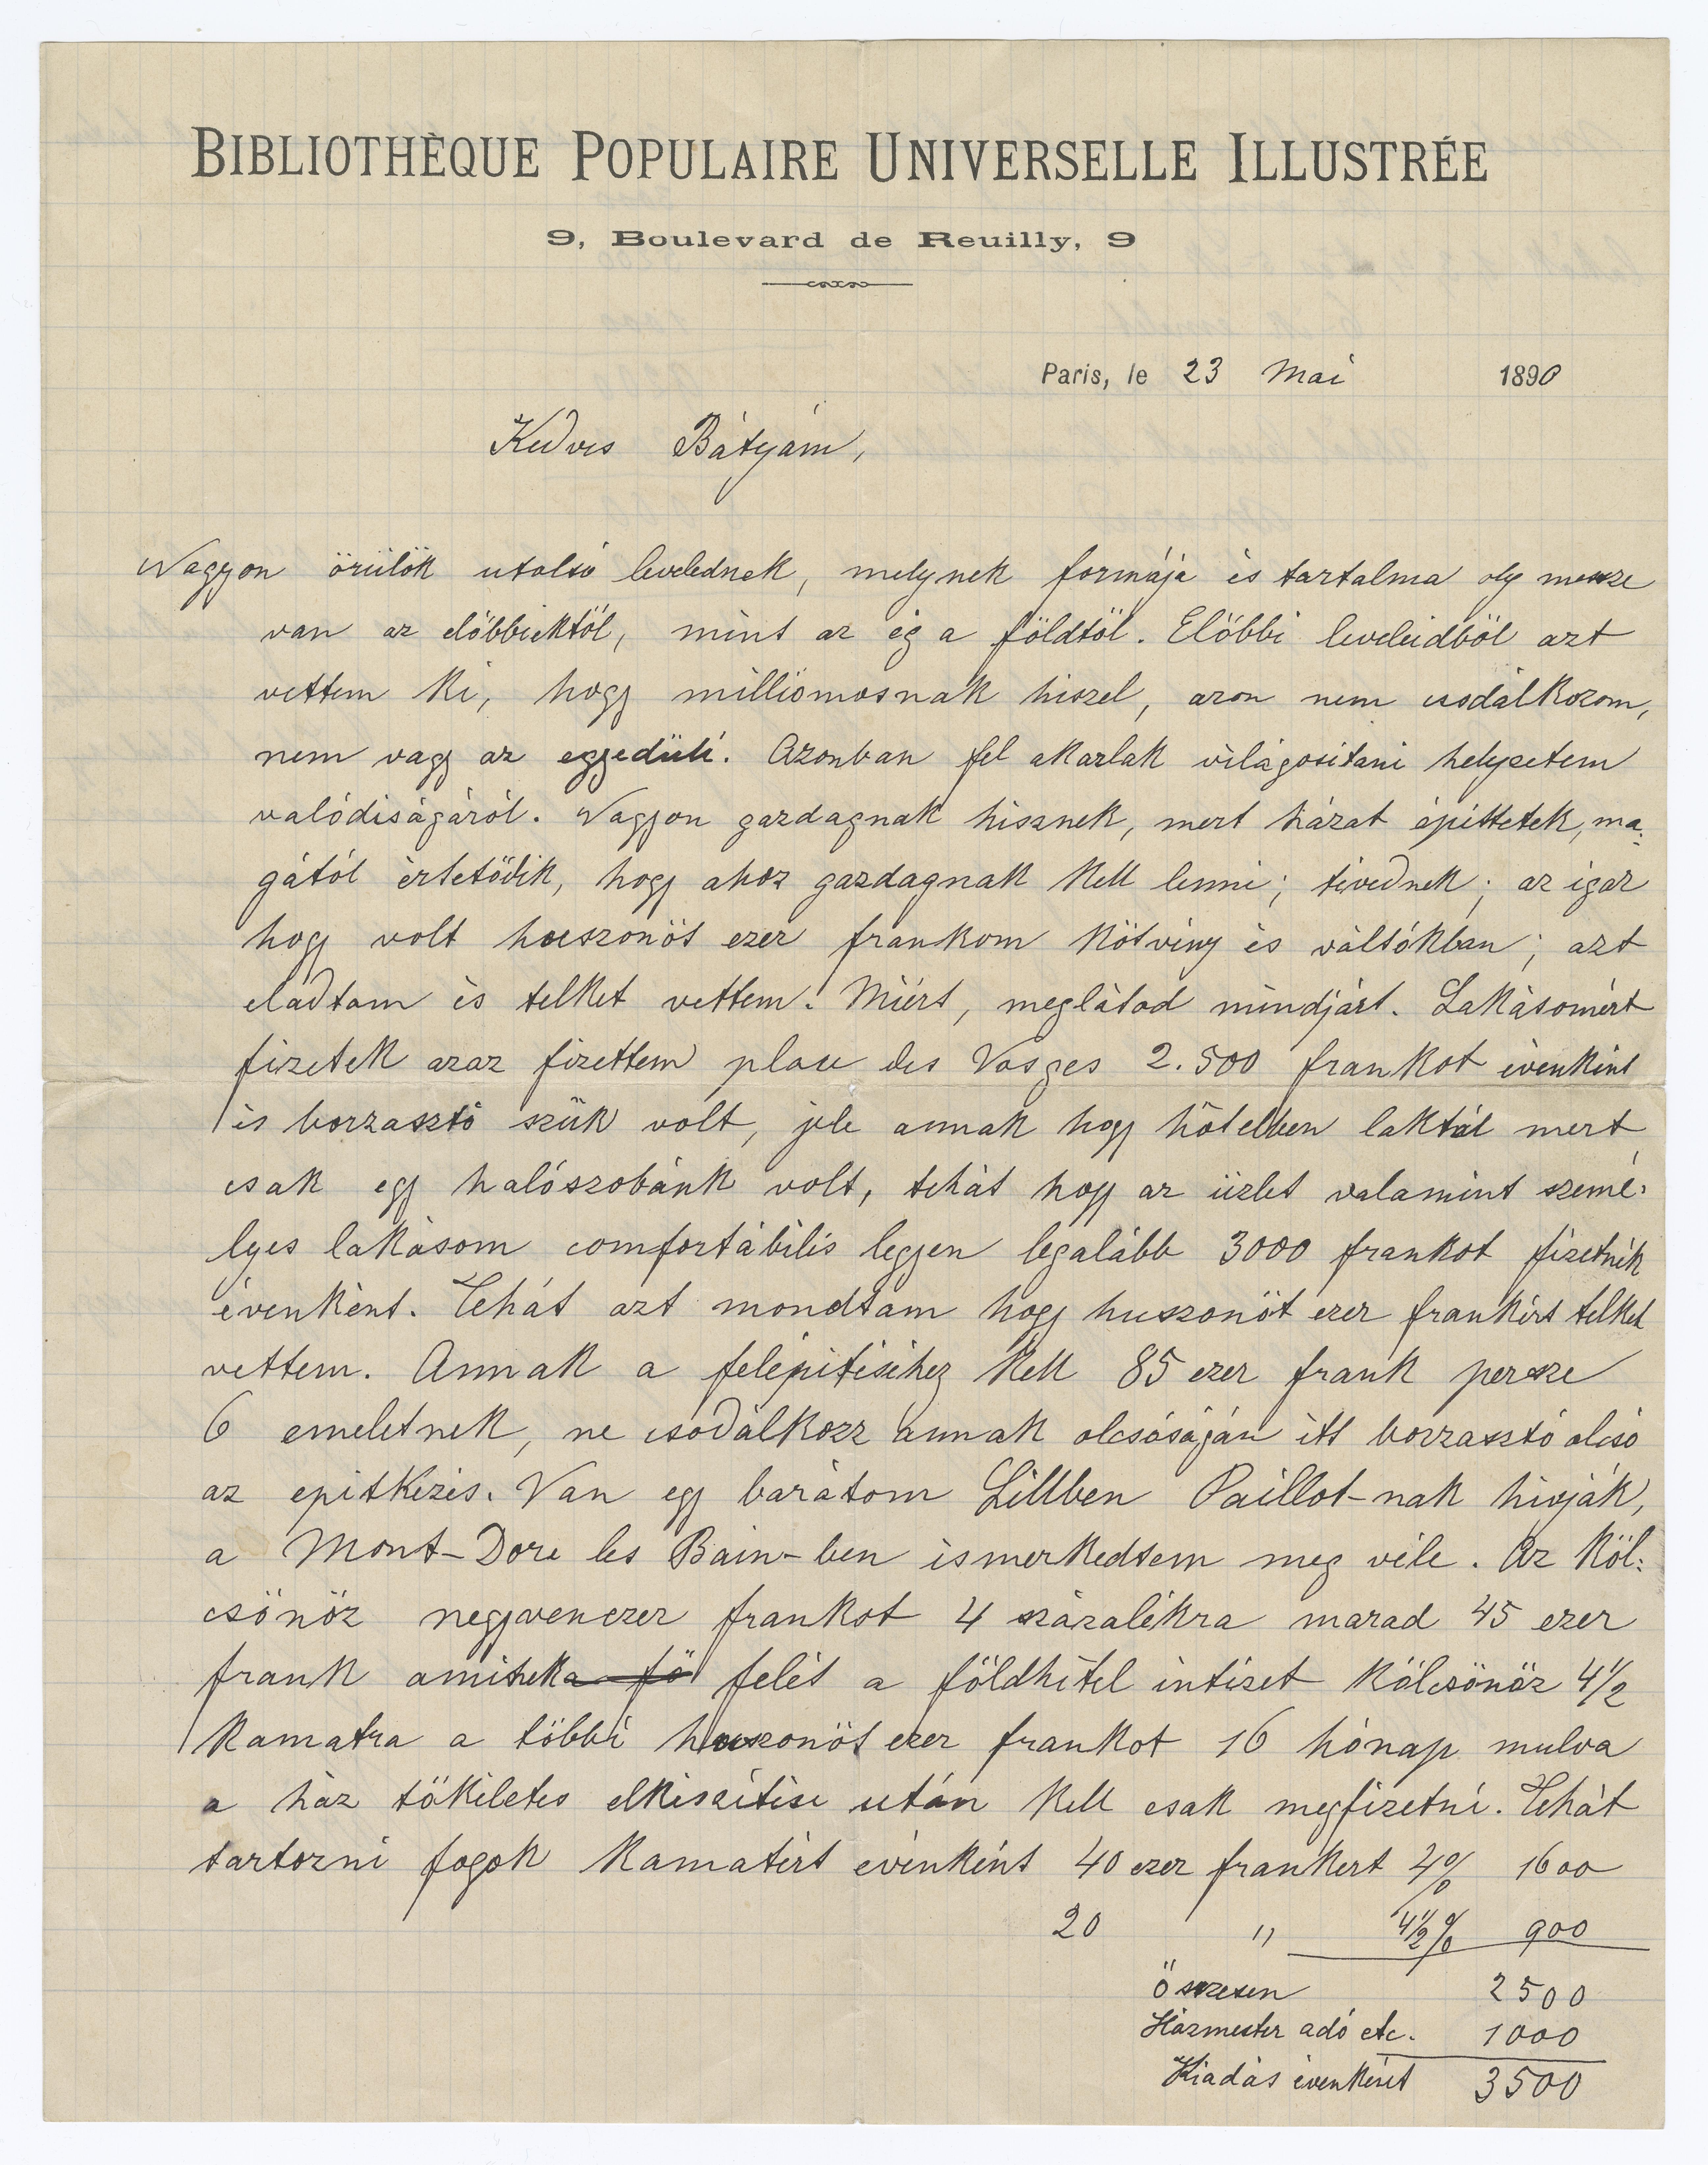 BIBLIOTHÈQUE POPULAIRE UNIVERSELLE ILLUSTRÉE
9, Boulevard de Reuilly, 9
Paris, le 23 Mai 1890
Kedves Bátyám,
Nagyon örülök utolsó levelednek, melynek formája és tartalma oly messze
van az előbbiektöl, mint az ég a földtöl. Előbbi leveleidböl azt
vettem ki, hogy milliomosnak hiszel, azon nem csodálkozom,
nem vagy az egyedüli. Azonban fel akarlak világositani helyzetem
valódiságáról. Nagyon gazdagnak hisznek, mert házat épittetek, ma-
gától értetödik, hogy ahoz gazdagnak kell lenni; tévednek; az igaz
hogy volt huszonöt ezer frankom kötvény és váltókban; azt
eladtam és telket vettem. Miért, meglátod mindjárt. Lakásomért
fizetek azaz fizettem place des Vosges 2.500 frankot évenként
és borzasztó szük volt, jele annak hogy hôtelben laktál mert
csak egy halószobánk volt, tehát hogy az üzlet valamint szemé-
lyes lakásom comfortábilis legyen legalább 3000 frankot fizetnék
évenként. Tehát azt mondtam hogy huszonöt ezer frankért telket
vettem. Annak a felépitéséhez kell 85 ezer frank persze
6 emeletnek, ne csodálkozz annak olcsóságján itt borzasztó olcsó
az epitkezés. Van egy barátom Lillben Paillot-nak hivják,
a Mont-Dore les Bain-ben ismerkedtem meg véle. Az köl-
csönöz negyvenezer frankot 4 százalékra marad 45 ezer
frank aminek a fö felét a földhitel intézet kölcsönöz 4 1/2
kamatra a többi huszonöt ezer frankot 16 hónap mulva
a ház tökéletes elkészitése után kell csak megfizetni. Tehát
tartozni fogok kamatért évenként 40 ezer frankert 4% 1600
20 " 4 1/2 % 900
Összesen 2500
Házmester adó etc. 1000
Kiadás évenként 3500